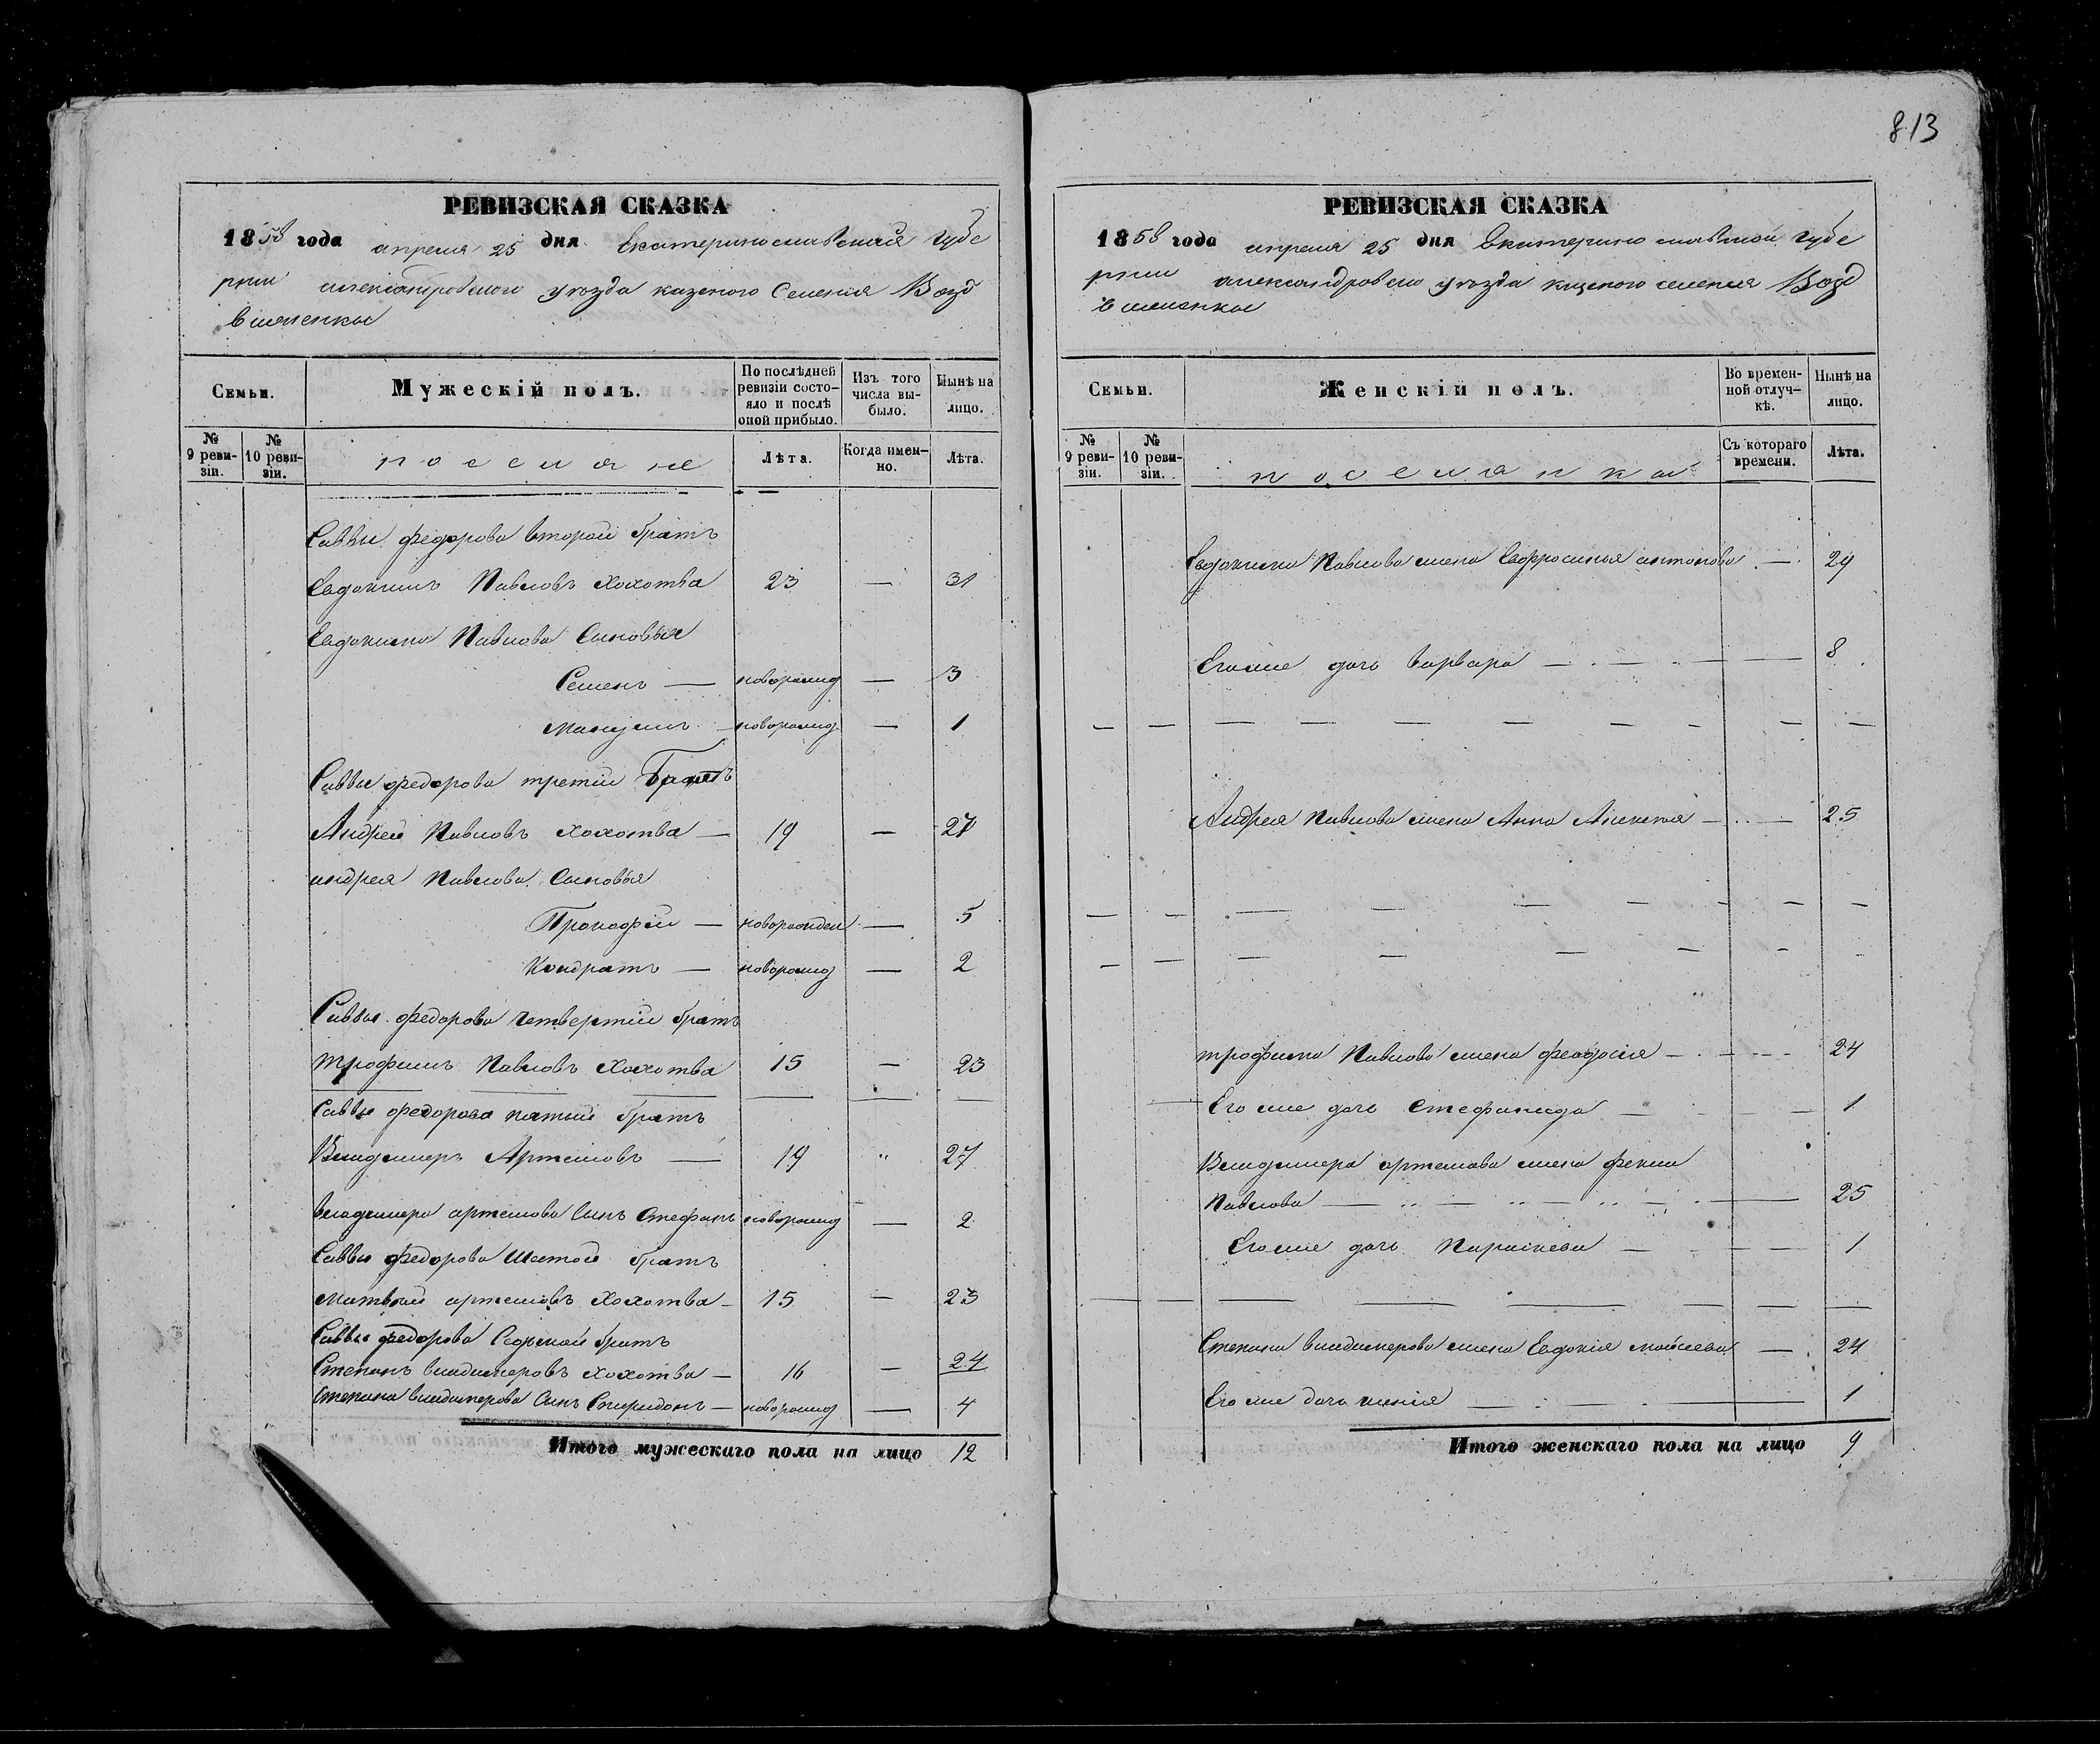 813
РЕВИЗСКАЯ СКАЗКА
1858 года апреля 25 дня Екатеринославской губе
рнии александровского уезда казеного Селения Возд
вишенки
Семьи.
Мужескій полъ.
По послѣдней ревизіи состо-яло и послѣ оной прибыло.
Изъ того числа вы-было.
Нынѣ на лицо.
№ 9 реви-зіи.
№ 10 реви-зіи.
поселяне
Лѣта.
Когда имен-но.
Лѣта.
Саввы федорова второй братъ
Евдокимъ Павловъ Хохотва 23 — 31
Евдокима Павлова Сыновья
Семенъ — новорожд — 3
Мануилъ — новорожд — 1
Саввы федорова третий Братъ
Андрей Павловъ Хохотва — 19 — 27
андрея Павлова Сыновья
Прокофий — новорожден — 5
Кондратъ — новорожд — 2
Саввы федорова четвертий братъ
трофимъ Павловъ Хохотва 15 — 23
Саввы федорова пятий братъ
Владимеръ Артемовъ — 19 " 27
владимера артемова Сынъ Стефанъ новорожд — 2
Саввы федорова Шестой братъ
матвей артемовъ Хохотва — 15 — 23
Саввы федорова Седьмой братъ
Степанъ владимеровъ Хохотва — 16 — 24
Степана владимерова Сынъ Спиридонъ — новорожд — 4
Итого мужескаго пола на лицо 12
РЕВИЗСКАЯ СКАЗКА
1858 года апреля 25 дня Екатеринославской губе
рнии александровско уезда казеного селения Возд
вишенки
Семьи.
Женскій полъ.
Во времен-ной отлуч-кѣ.
Нынѣ на лицо.
№ 9 реви-зіи.
№ 10 реви-зіи.
поселянки
Съ котораго времени.
Лѣта.
Евдокима Павлова жена Евфросинья антонова — 29
Его же дочь варвара — 8
Андрея Павлова жена Анна — 25
трофима Павлова жена феодосия — 24
Его же дочь Стефанида — 1
Владимера артемова жена
Павлова — 25
Его же дочь Параскева — 1
Степана владимерова жена Евдокия мойсеева — 24
Его же дочь — 1
Итого женскаго пола на лицо 9